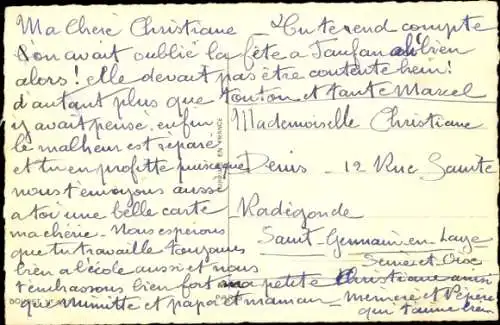 Ma Chère Christiane Tu te rend compte
l'on avait oublié la fête a ah! bien
alors! elle devait pas être contente hein!
d'autant plus que tonton et tante Marcel
y avait pensé. enfin
le malheur est réparé
et tu en profitte puisque
nous t'envoyons aussi
a toi une belle carte
ma chérie. Nous espérons
que tu travaille toujours
bien a l'école aussi et nous
t'embrassons bien fort ma petite Christiane ainsi
que Mimitte et papa et maman. memère et Pépère
qui t'aime bien
Mademoiselle Christiane
Denis 12 Rue Sainte
Radégonde
Saint-Germain-en-Laye
Seine et Oise
EN FRANCE